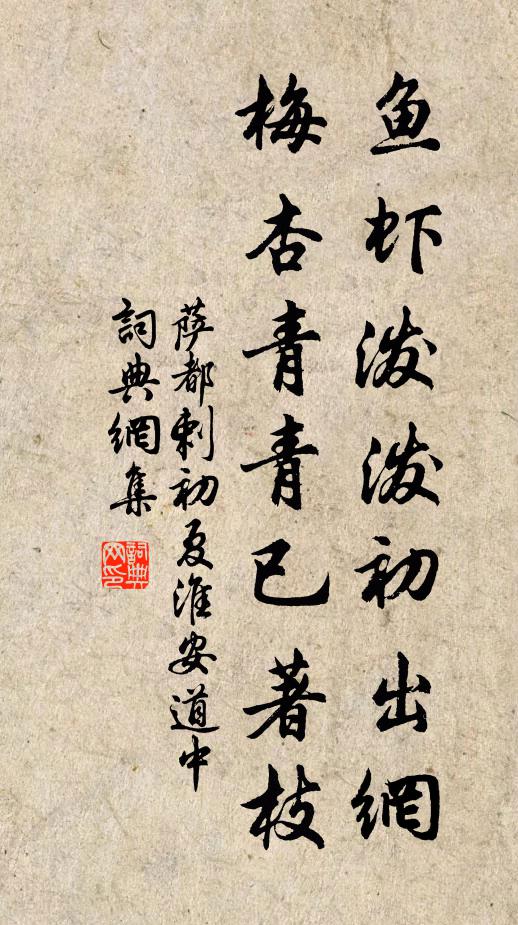 鱼虾泼泼初出網
梅杏青青已著枝
萨都剌初夏淮安道中
詞典網集
詞典网印